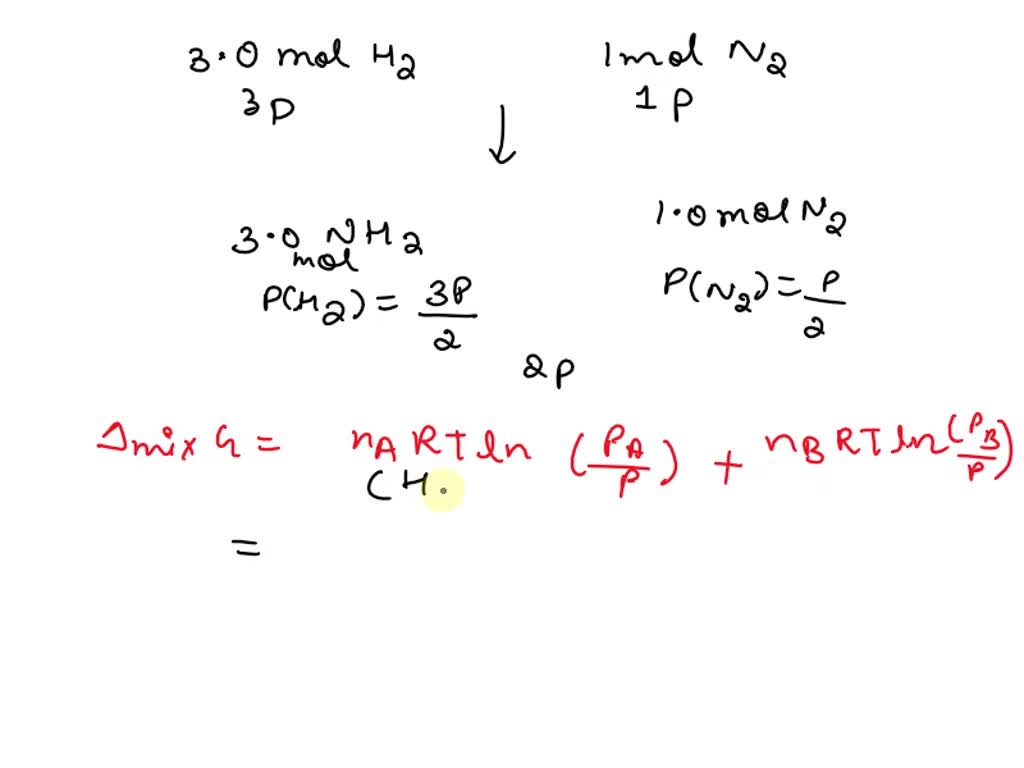 3.0 mol H₂ 1 mol N₂
3P 1P
3.0 mol NH₂ 1.0 mol N₂
P(H₂) = 3P/2 P(N₂) = P/2
2P
Δmix G = nA RT ln (PA/P) + nB RT ln (PB/P)
(H
=